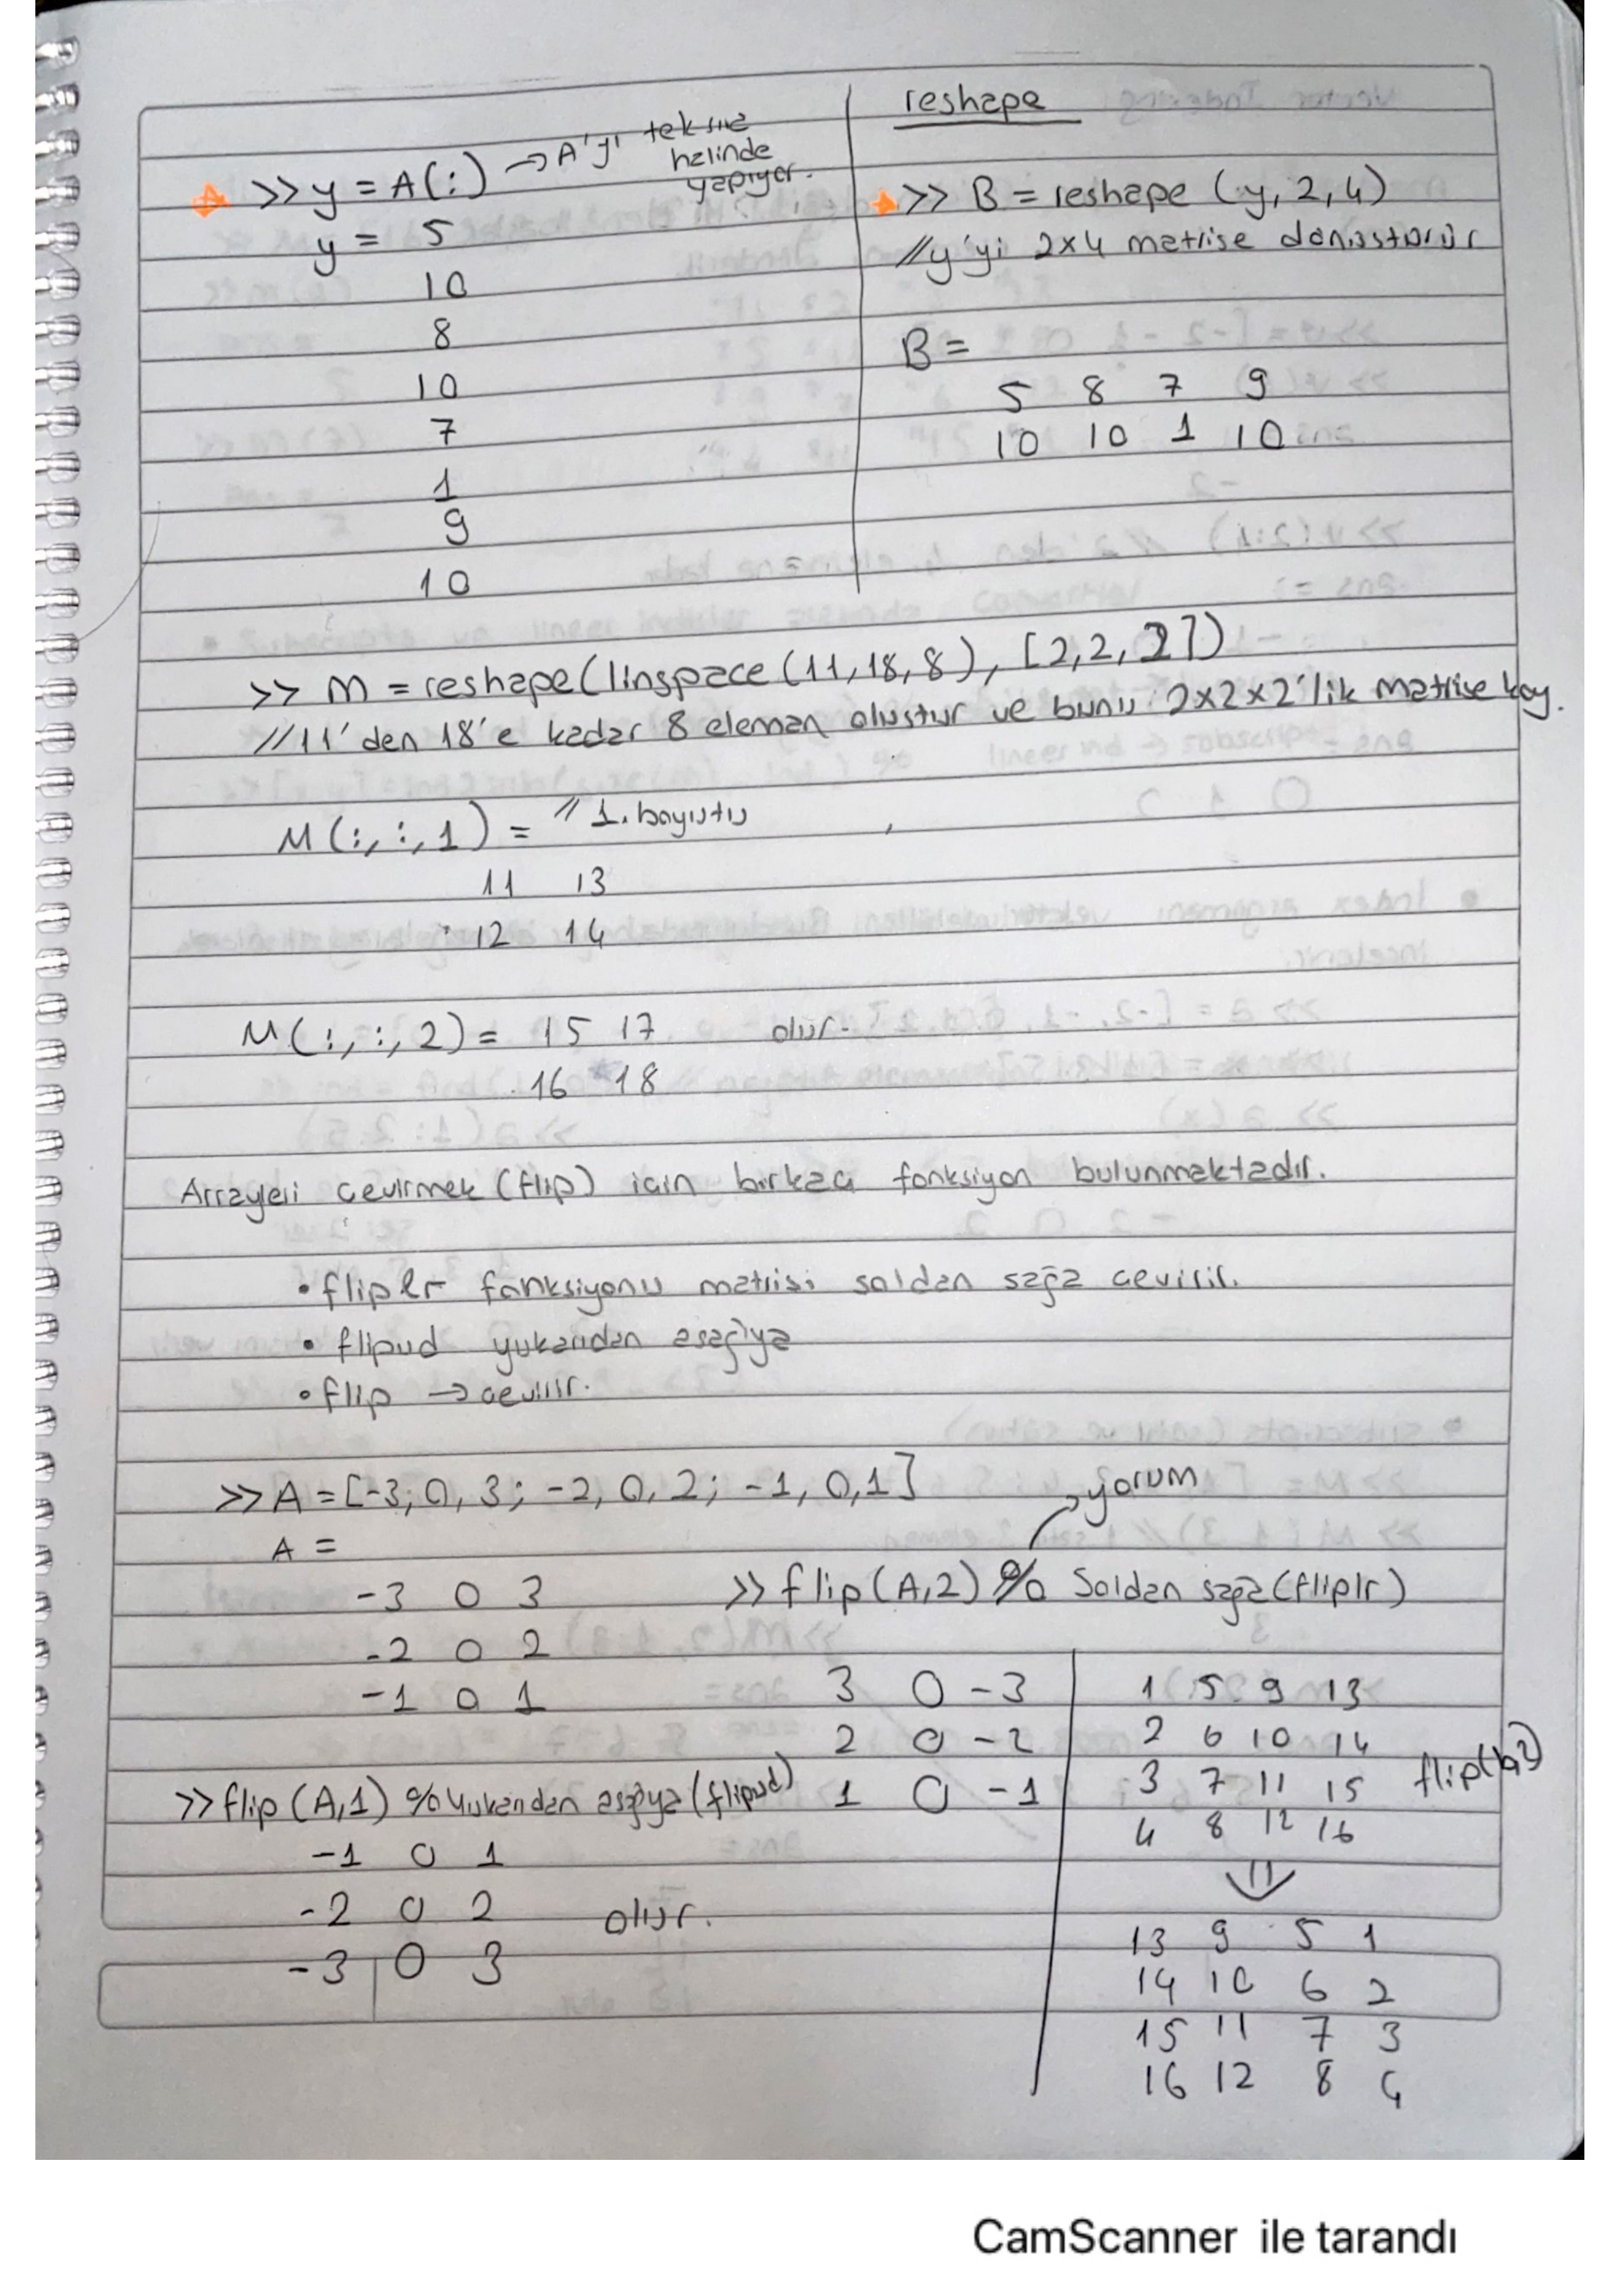 >> y = A(:) → A'yı tek sıra
halinde
yapıyor.
y = 5
10
8
10
7
1
9
10
reshape
>> B = reshape (y, 2, 4)
//y'yi 2x4 matrise dönüştürür
B =
5 8 7 9
10 10 1 10
>> M = reshape(linspace(11,18,8), [2,2,2])
//11'den 18'e kadar 8 eleman oluştur ve bunu 2x2x2'lik matrise koy.
M(:,:,1) = // 1. boyutu
11 13
12 14
M(:,:,2) = 15 17 olur.
16 18
Arrayleri çevirmek (flip) için birkaç fonksiyon bulunmaktadır.
• fliplr fonksiyonu matrisi soldan sağa çevirir.
• flipud yukarıdan aşağıya
• flip → çevirir.
>> A = [-3, 0, 3; -2, 0, 2; -1, 0, 1]
A =
-3 0 3
-2 0 2
-1 0 1
→ yorum
>> flip(A,2) % Soldan sağa (fliplr)
3 0 -3
2 0 -2
1 0 -1
>> flip(A,1) % Yukarıdan aşağıya (flipud)
-1 0 1
-2 0 2 olur.
-3 0 3
1 5 9 13
2 6 10 14
3 7 11 15
4 8 12 16
13 9 5 1
14 10 6 2
15 11 7 3
16 12 8 4
CamScanner ile tarandı